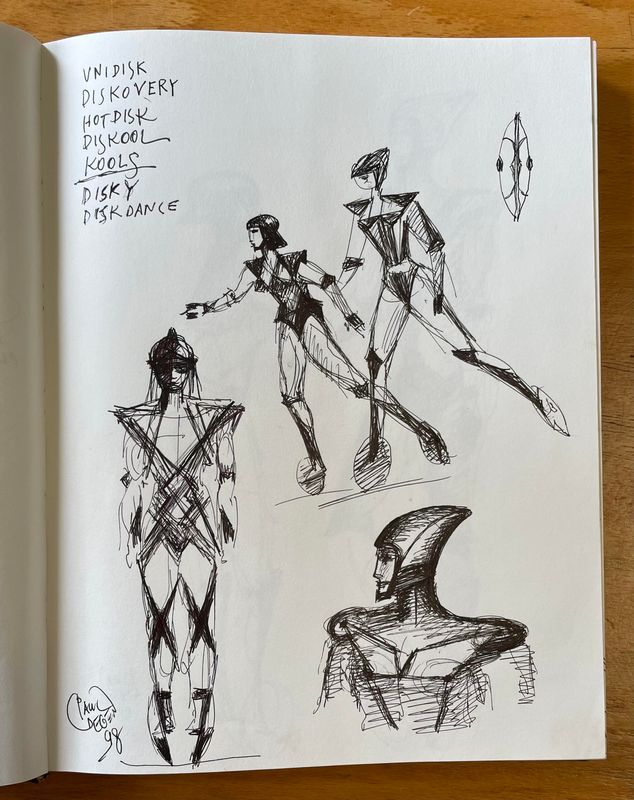 UNIDISK
DISKOVERY
HOTDISK
DISKOOL
KOOLS
DISKY
DISKDANCE
PAUL
98